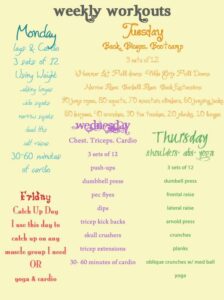 weekly workouts
Monday
legs & Cardio
3 sets of 12
Using Weight
walking lunges
side squats
narrow squats
dead lifts
calf raises
30-60 minutes
of cardio
Tuesday
Back, Biceps, Bootcamp
3 sets of 12
Wide Grip Pull downs
Narrow Rows, Barbell Rows, Back Extensions
30 jump ropes, 50 squats, 75 mountain climbers, 60 jumping jacks
wednesday
Chest. Triceps. Cardio
3 sets of 12
push-ups
dumbbell press
pec flyes
dips
tricep kick backs
skull crushers
tricep extensions
30- 60 minutes of cardio
Thursday
shoulders- abs- yoga
3 sets of 12
dumbell press
frontal raise
lateral raise
arnold press
crunches
planks
oblique crunches w/ med ball
yoga
Friday
Catch Up Day
I use this day to
catch up on any
muscle group I need
OR
yoga & cardio